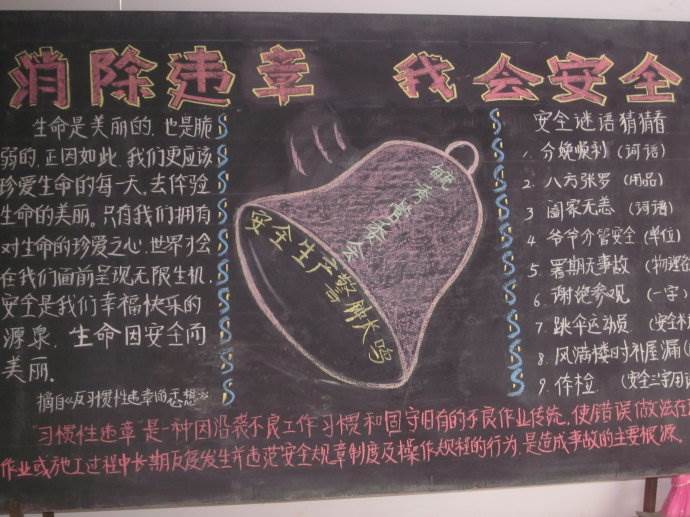 消除违章 我会安全
生命是美丽的,也是脆
弱的,正因如此,我们更应该
珍爱生命的每一天,去体验
生命的美丽。只有我们拥有
对生命的珍爱之心,世界才会
在我们面前呈现无限生机,
安全是我们幸福快乐的
源泉,生命因安全而
美丽.
摘自《反习惯性违章的思想》
安全生产警钟大鸣
安全谜语猜猜看
1. 分娩顺利 (词语)
2. 八方张罗 (用品)
3 阖家无恙 (词语)
4. 爷爷亦管安全 (单位)
5. 暑期无事故 (物理
6. 谢绝参观 (一字)
7. 跳伞运动员. (安全
8. 风满楼时补屋漏
9. 体检 (安全三字用语
"习惯性违章"是一种因沿袭不良工作习惯和固守旧有的不良作业传统,使错误做法在
作业或施工过程中长期反复发生并违范安全规章制度及操作规程的行为,是造成事故的主要根源.